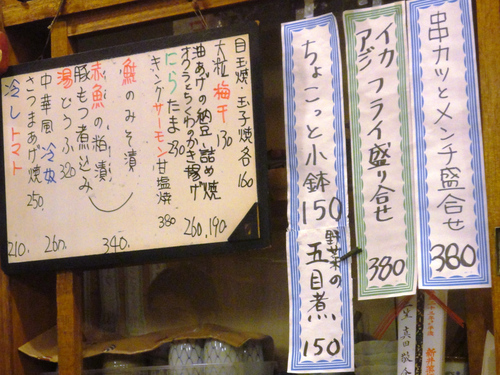 串カツとメンチ盛合せ
380
イカ フライ盛り合せ
アジ
380
ちょこっと小鉢
150
野菜の
五目煮
150
目玉焼・玉子焼 各160
大粒 梅干 130
油あげの納豆詰め焼 190
オクラとちくわのかき揚げ 260
にらたま 280
キングサーモン甘塩焼 380
鮭のみそ漬
赤魚の粕漬 340
豚もつ煮込み
湯どうふ 320
中華風 冷奴 260
さつまあげ焼 250
冷しトマト 210